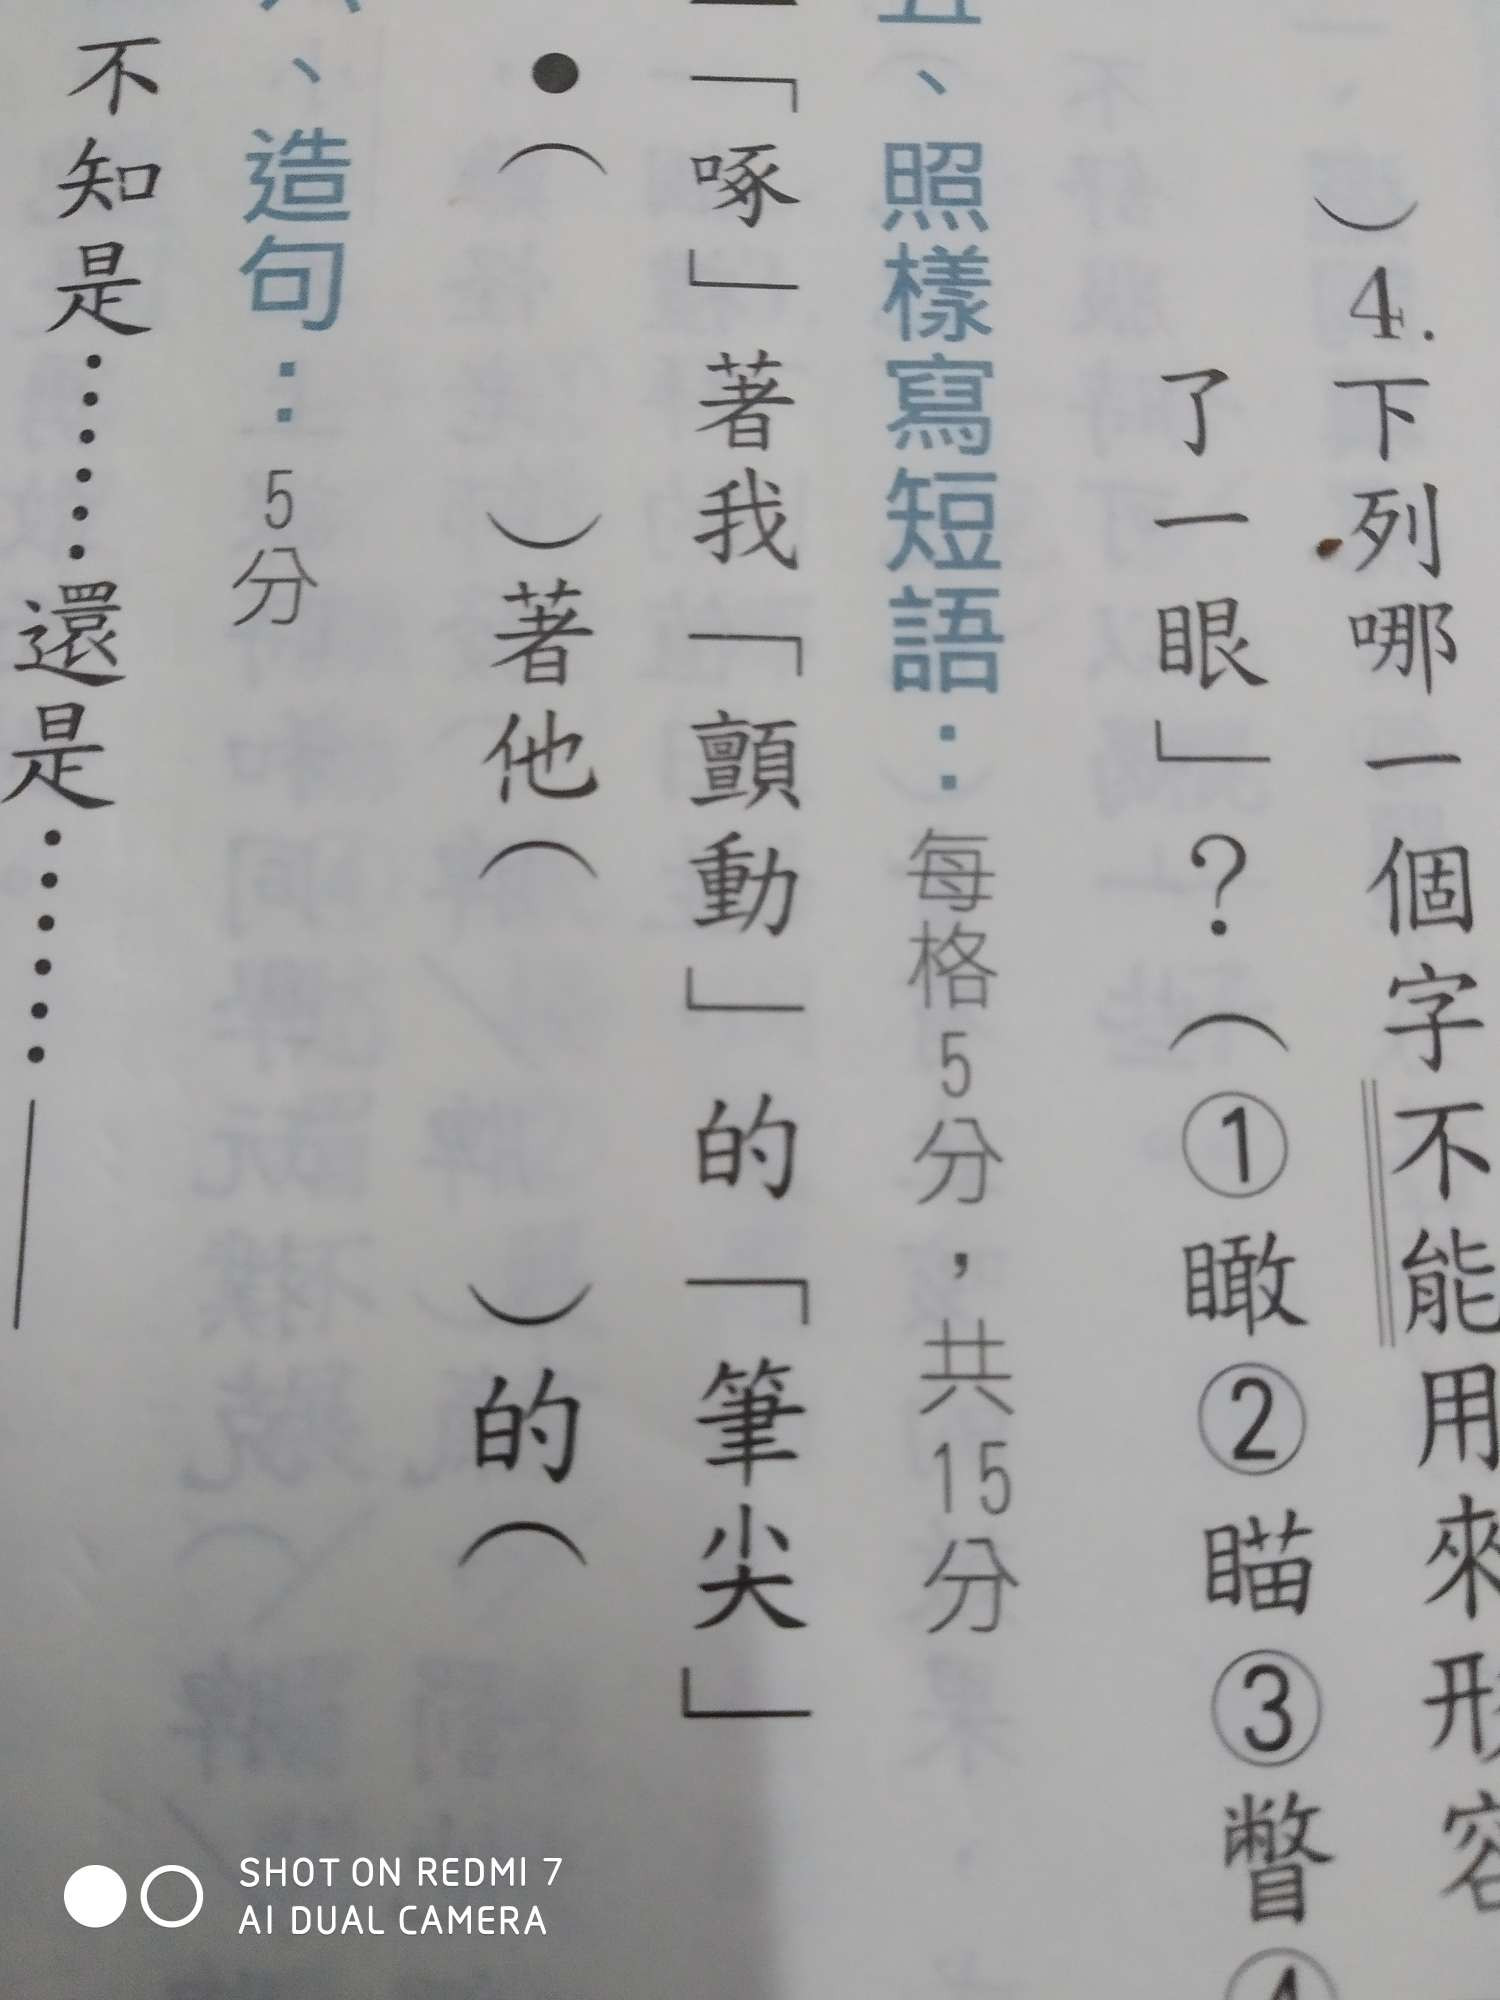 )4.下列哪一個字不能用來形容
了一眼」?(①瞰②瞄③瞥④
五、照樣寫短語：每格5分，共15分
「啄」著我「顫動」的「筆尖」
•( )著他( )的(
、造句：5分
不知是……還是……
SHOT ON REDMI 7
AI DUAL CAMERA